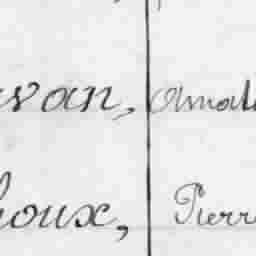 wan, Amal
houx, Pierr